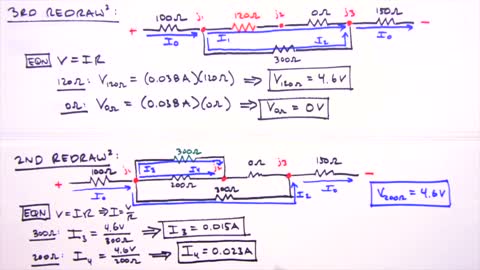 3RD REDRAW²:
100Ω j1 120Ω j2 0Ω j3 150Ω
+ −
I₀ I₁ I₂ I₀
300Ω
EQN V = IR
120Ω: V120Ω = (0.038A)(120Ω) ⟹ V120Ω = 4.6V
0Ω: V0Ω = (0.038A)(0Ω) ⟹ V0Ω = 0V
2ND REDRAW²:
300Ω
100Ω j1 I₃ I₄ j2 0Ω j3 150Ω
+ 200Ω −
I₀ 300Ω I₂ I₀
V200Ω = 4.6V
EQN V = IR ⟹ I = V/R
300Ω: I₃ = 4.6V/300Ω ⟹ I₃ = 0.015A
200Ω: I₄ = 4.6V/200Ω ⟹ I₄ = 0.023A